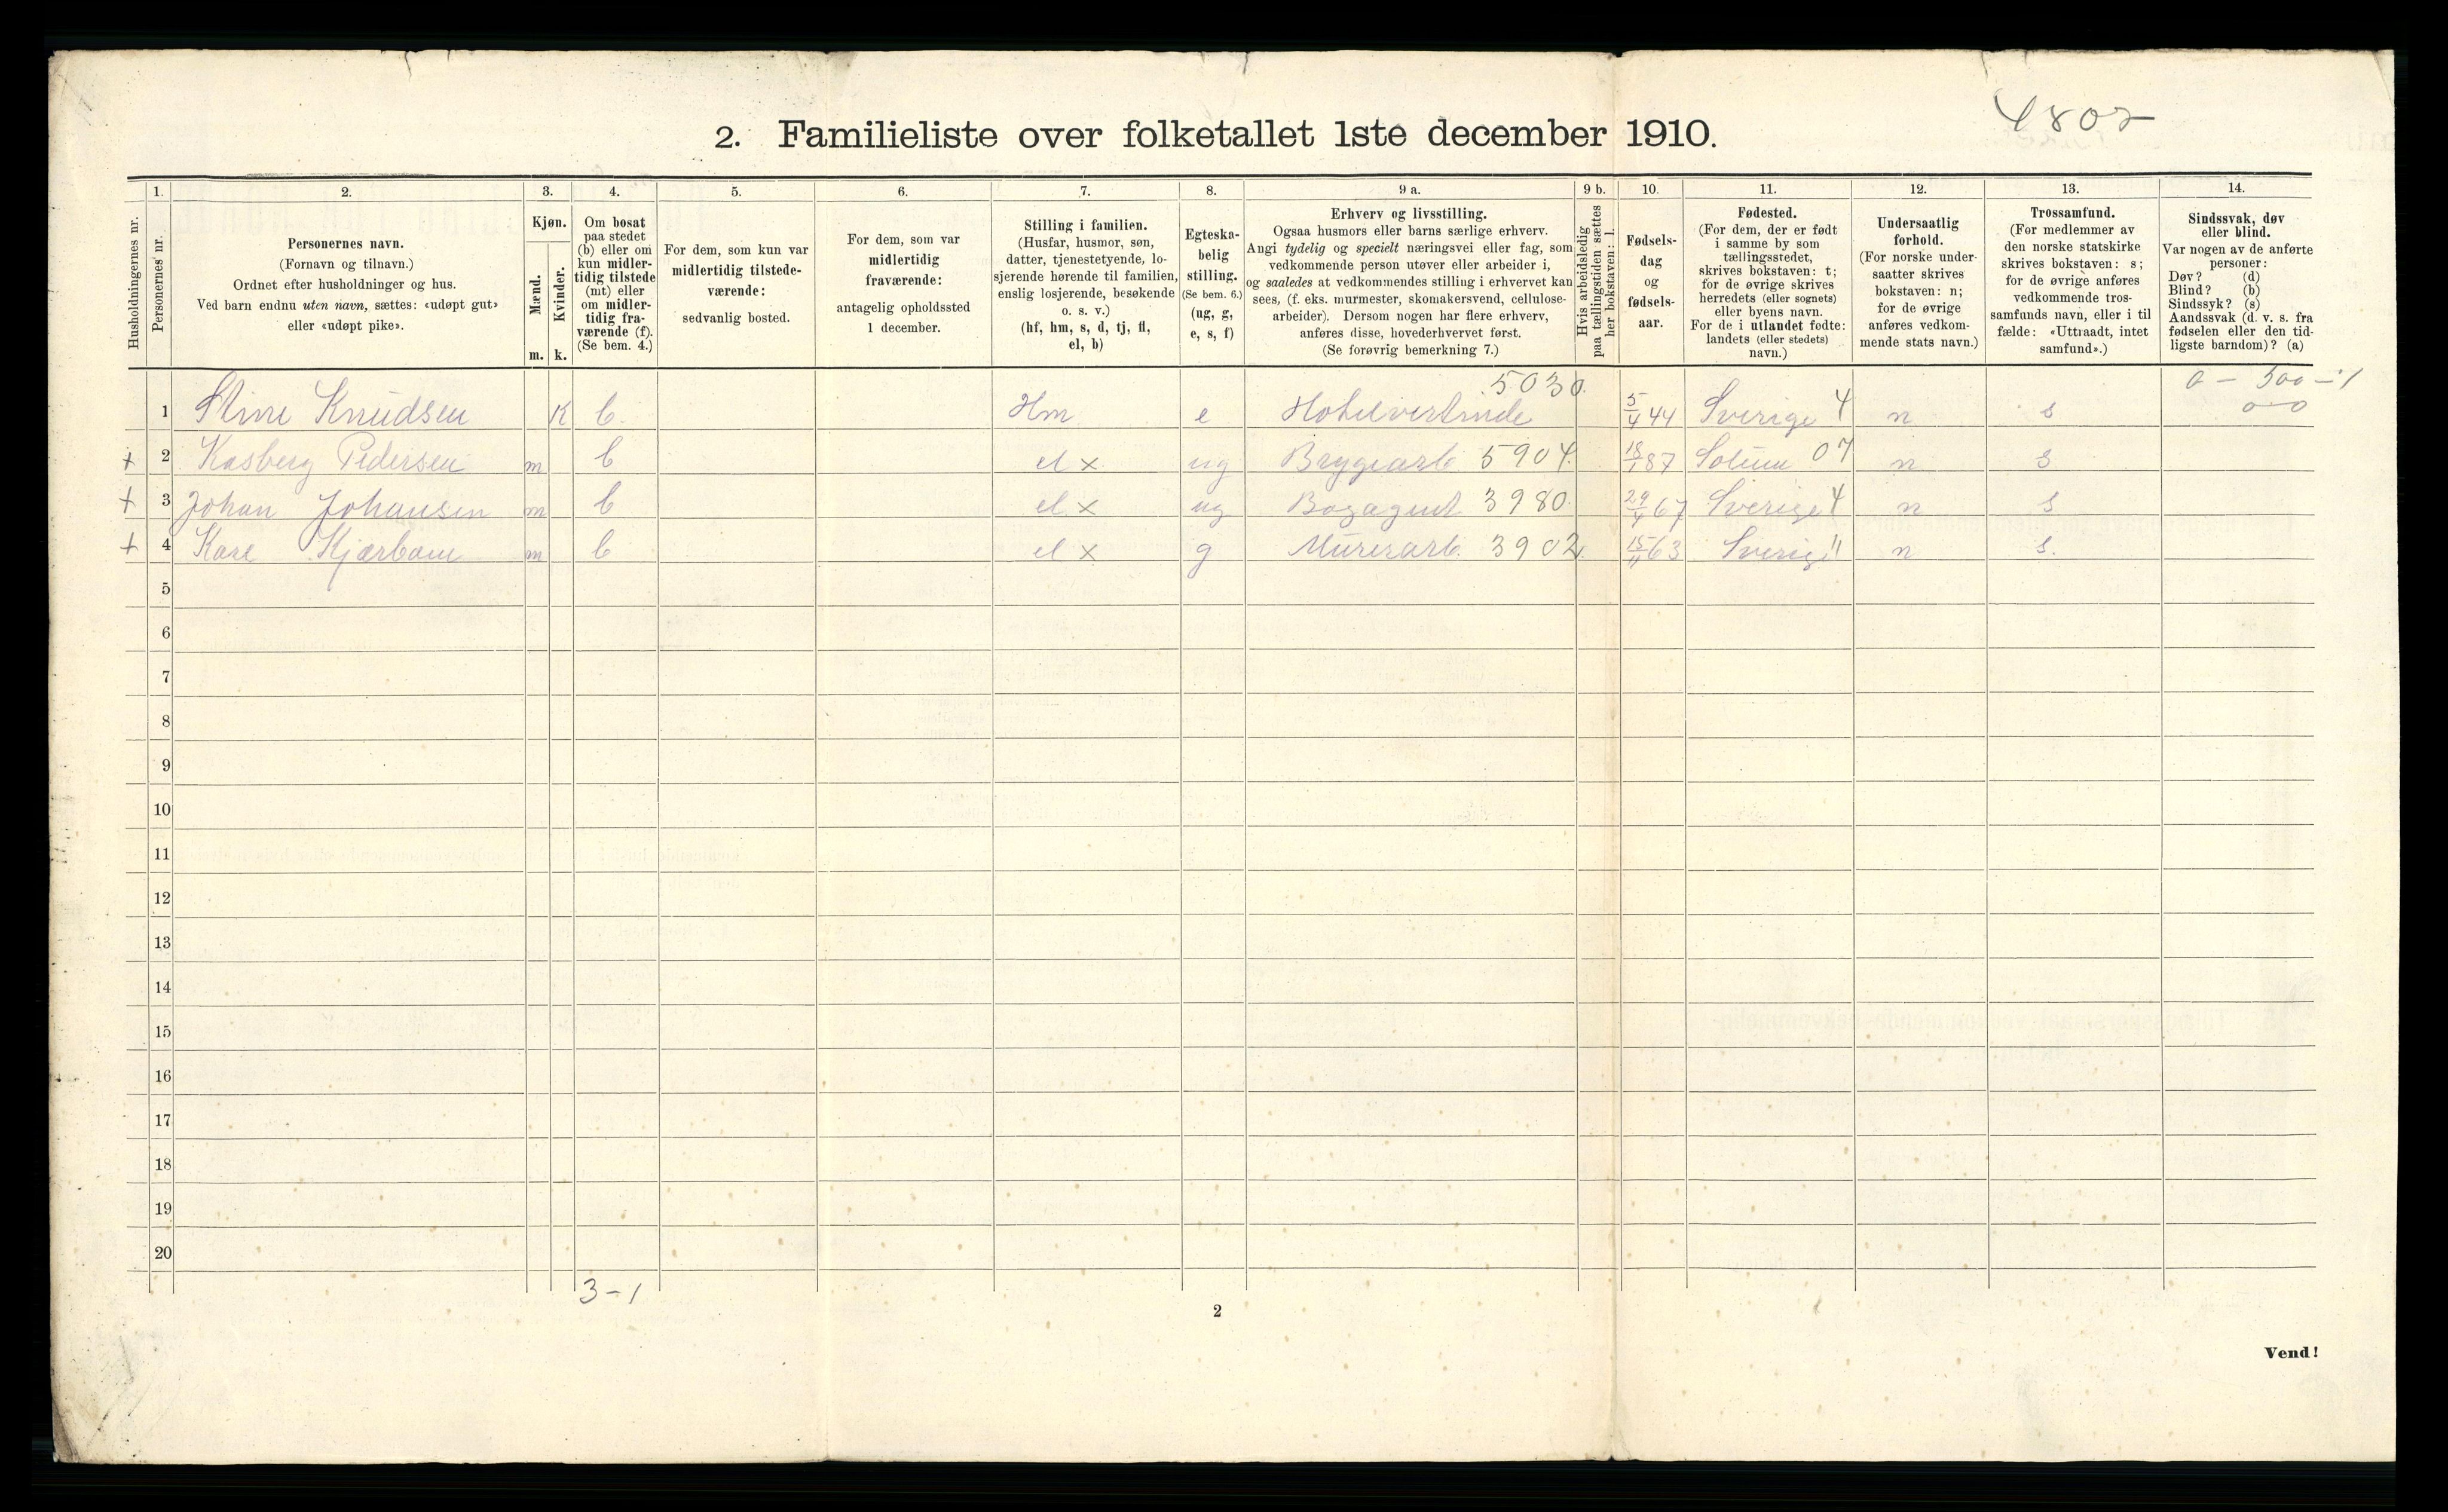 4802
2. Familieliste over folketallet 1ste december 1910.
1. 2. 3. 4. 5. 6. 7. 8. 9 a. 9 b. 10. 11. 12. 13. 14.
Husholdningernes nr.
Personernes nr.
Personernes navn.
(Fornavn og tilnavn.)
Ordnet efter husholdninger og hus.
Ved barn endnu uten navn, sættes: «udøpt gut»
eller «udøpt pike».
Kjøn.
Mænd.
Kvinder.
m. k.
Om bosat
paa stedet
(b) eller om
kun midler-
tidig tilstede
(mt) eller
om midler-
tidig fra-
værende (f).
(Se bem. 4.)
For dem, som kun var
midlertidig tilstede-
værende:
sedvanlig bosted.
For dem, som var
midlertidig
fraværende:
antagelig opholdssted
1 december.
Stilling i familien.
(Husfar, husmor, søn,
datter, tjenestetyende, lo-
sjerende hørende til familien,
enslig losjerende, besøkende
o. s. v.)
(hf, hm, s, d, tj, fl,
el, b)
Egteska-
belig
stilling.
(Se bem. 6.)
(ug, g,
e, s, f)
Erhverv og livsstilling.
Ogsaa husmors eller barns særlige erhverv.
Angi tydelig og specielt næringsvei eller fag, som
vedkommende person utøver eller arbeider i,
og saaledes at vedkommendes stilling i erhvervet kan
sees, (f. eks. murmester, skomakersvend, cellulose-
arbeider). Dersom nogen har flere erhverv,
anføres disse, hovederhvervet først.
(Se forøvrig bemerkning 7.)
Hvis arbeidsledig
paa tællingstiden sættes
her bokstaven: l.
Fødsels-
dag
og
fødsels-
aar.
Fødested.
(For dem, der er født
i samme by som
tællingsstedet,
skrives bokstaven: t;
for de øvrige skrives
herredets (eller sognets)
eller byens navn.
For de i utlandet fødte:
landets (eller stedets)
navn.)
Undersaatlig
forhold.
(For norske under-
saatter skrives
bokstaven: n;
for de øvrige
anføres vedkom-
mende stats navn.)
Trossamfund.
(For medlemmer av
den norske statskirke
skrives bokstaven: s;
for de øvrige anføres
vedkommende tros-
samfunds navn, eller i til
fælde: «Uttraadt, intet
samfund».)
Sindssvak, døv
eller blind.
Var nogen av de anførte
personer:
Døv? (d)
Blind? (b)
Sindssyk? (s)
Aandssvak (d. v. s. fra
fødselen eller den tid-
ligste barndom)? (a)
5030. 0 - 500 - 1
1 Stine Knudsen K b. Hm e Hotelvertinde 5/4 44 Sverige 4 n s 0-0
+ 2 Kasberg Pedersen m b el x ug Brygearb. 5904. 18/1 87 Solum 07 n s
+ 3 Johan Johansen m b el. x ug Bogagent 3980. 29/4 67 Sverige 4 n s
+ 4 Karl Kjærbom m b el x g Murerarb. 3902. 15/11 63 Sverige " n s.
5
6
7
8
9
10
11
12
13
14
15
16
17
18
19
20
3-1
2
Vend!